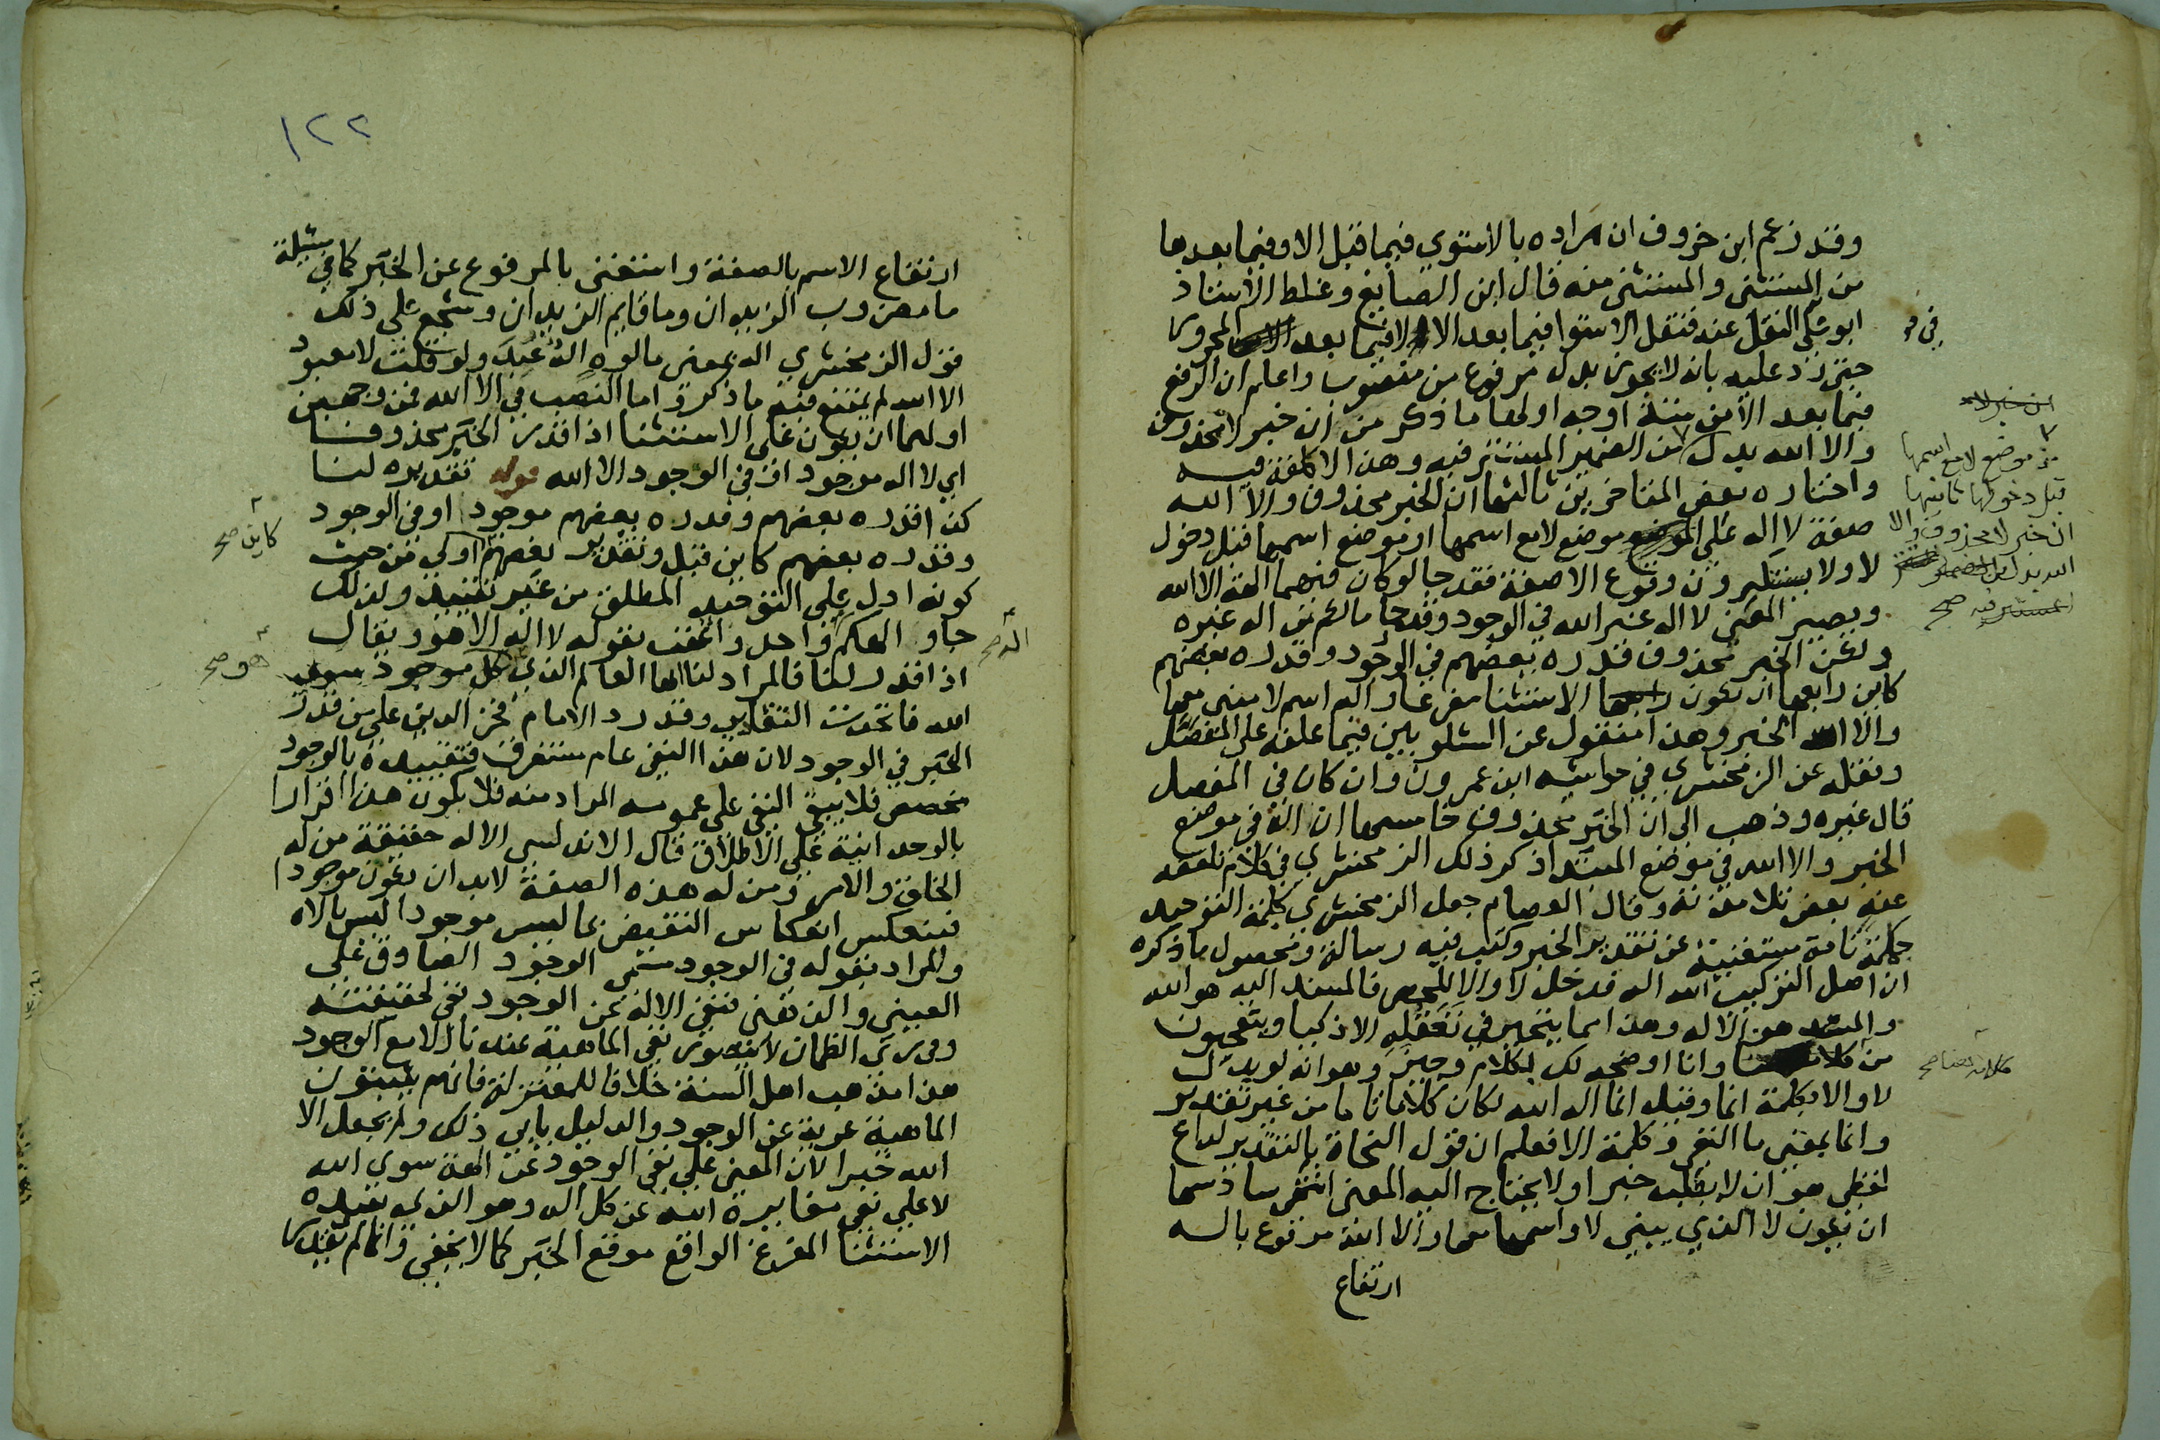 وقد زعم ابن خروف ان مراده بالاستوي فيما قبل الا وفيما بعدها
من المستثنى والمستثنى منه قال ابن الصايغ وغلط الاستاذ
ابو علي النقل عنه فنقل الاستوا فيما بعد الا لا فيما بعد المجرور
حتى رد عليه بانه لا يجوز بدل مرفوع من منصوب واعلم ان الرفع
فيما بعد الا من ستة اوجه اولها ما ذكر من ان خبر لا محذوف
والا الله بدل من الضمير المستتر فيه وهذا لا كلفة فيه
واختاره بعض المتاخرين ثالثها ان الخبر محذوف والا الله
صفة لا اله على موضع لا مع اسمها او موضع اسمها قبل دخول
لا ولا يستنكرون وقوع الا صفة فقد جا لو كان فيهما الهة الا الله
ويصير المعنى لا اله غير الله في الوجود وقد جا مالكم من اله غيره
ولكن الخبر محذوف قدره بعضهم في الوجود وقدره بعضهم
كاين رابعها ان يكون الاستثنا مفرغا واله اسم لا مبني معها
والا الله الخبر وهذا منقول عن الشلوبين فيما علقه على المفصل
ونقله عن الزمخشري في حواشيه ابن عمرون وان كان في المفصل
قال غيره وذهب الى ان الخبر محذوف خامسها ان اله في موضع
الخبر والا الله في موضع المبتدا ذكر ذلك الزمخشري في كلام تلقفه
عنه بعض تلامذته وقال العصام جعل الزمخشري كلمة التوحيد
جملة تامة مستغنية عن تقدير الخبر وكتب فيه رسالة ومحصول ما ذكره
ان اصل التركيب الله اله فدخل لا والا للحصر فالمسند اليه هو الله
والمسند هو الاله وهذا مما يتحير في تعقله الاذكيا ويتعجبون
من وانا اوضحه لك بكلام وجيز وهو انه لو بدل
لا والا بكلمة انما وقيل انما اله الله لكان كلاما تاما من غير تقدير
وانما بمعنى ما النفي وكلمة الا فعلم ان قول النحاة بالتقدير لداع
لفظي هو ان لا يطلب خبرا ولا يحتاج اليه المعنى انتهى سادسها
ان يكون لا الذي يبني لا واسمها معها والا اله مرفوع باله
ارتفاع
في مو
من موضع لا مع اسمها
قبل دخولها ثانيها
ان خبر لا محذوف والا
الله بدل من
صح
كلامه هنا صح
١٢٢
ارتفاع الاسم بالصفة واستغنى بالمرفوع عن الخبر كما في مسئلة
ما مضروب الزيدان وما قايم الزيدان وشجع على ذلك
قول الزمخشري اله بمعنى مالوه اله عبد ولو قلت لا معبود
الا الله لم يمتنع فيه ما ذكر واما النصب في الا الله فمن وجهين
اولهما ان يكون على الاستثنا اذا قدر الخبر محذوفا
اي لا اله موجود او في الوجود الا الله قوله تقديره لنا
كذا قدره بعضهم وقدره بعضهم موجود او في الوجود
وقدره بعضهم كاين قبل وتقدير بعضهم اولى من حيث
كونه ادل على التوحيد المطلق من غير تقييد ولذلك
جاو الهكم واحد واعقب بقوله لا اله الا هو ويقال
اذا قدر لنا فالمراد لنا ايها العالم الذي كل موجود سوى
الله فاتحدت التقادير وقد رد الامام فخر الدين على من قدر
الخبر في الوجود لان هذا النفي عام مستغرق فتقييده بالوجود
مخصص فلا يبقى النفي على عمومه المراد منه فلا يكون هذا اقرارا
بالوحدانية على الاطلاق قال الاندلسي الاله حقيقة من له
الخلق والامر ومن له هذه الصفة لابد ان يكون موجودا
فينعكس انعكاس النقيض بما ليس موجودا ليس بالاه
والمراد بقوله في الوجود مسمى الوجود الصادق على
العيني والذهني نفي الاله عن الوجود نفي لحقيقته
وفي ري الظمان لا يتصور نفي الماهية عندنا الا مع الوجود
هذا مذهب اهل السنة خلافا للمعتزلة فانهم يثبتون
الماهية عرية عن الوجود والدليل يابى ذلك ولم يجعل الا
الله خبرا لان المعنى على نفي الوجود عن الهة سوى الله
لا على نفي مغايرة الله عن كل اله وهو الذي يفيده
الاستثنا المفرغ الواقع موقع الخبر كما لا يخفى وانما لم يقدر
كاين صح
اله صح
هو صح